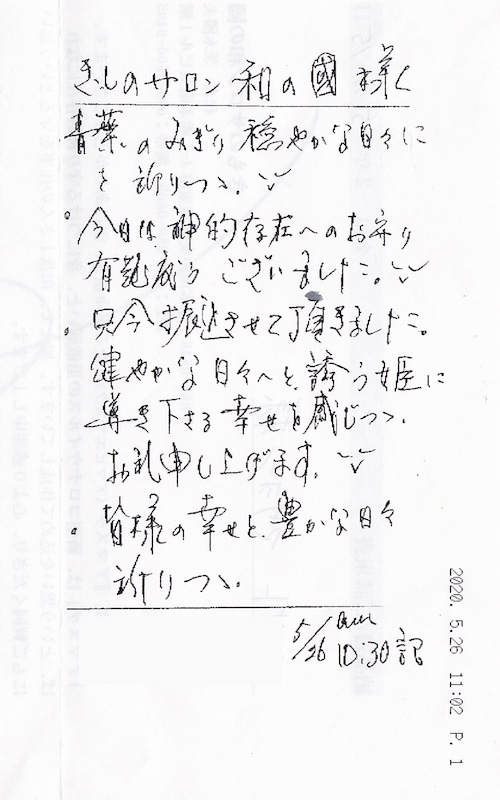 きしのサロン 和の國 様く
青葉のみぎり 穏やかな日々に
を 祈りつゝ、
。今日は 神的存在へのお守り
有難う ございました。
。只今 振込させて頂きました。
健やかな 日々へと 誘う 姫に
導き下さる 幸せを感じつゝ、
お礼申し上げます。
。皆様の幸せと、豊かな日々
祈りつゝ。
5/26 10:30 記
2020. 5.26 11:02 P. 1